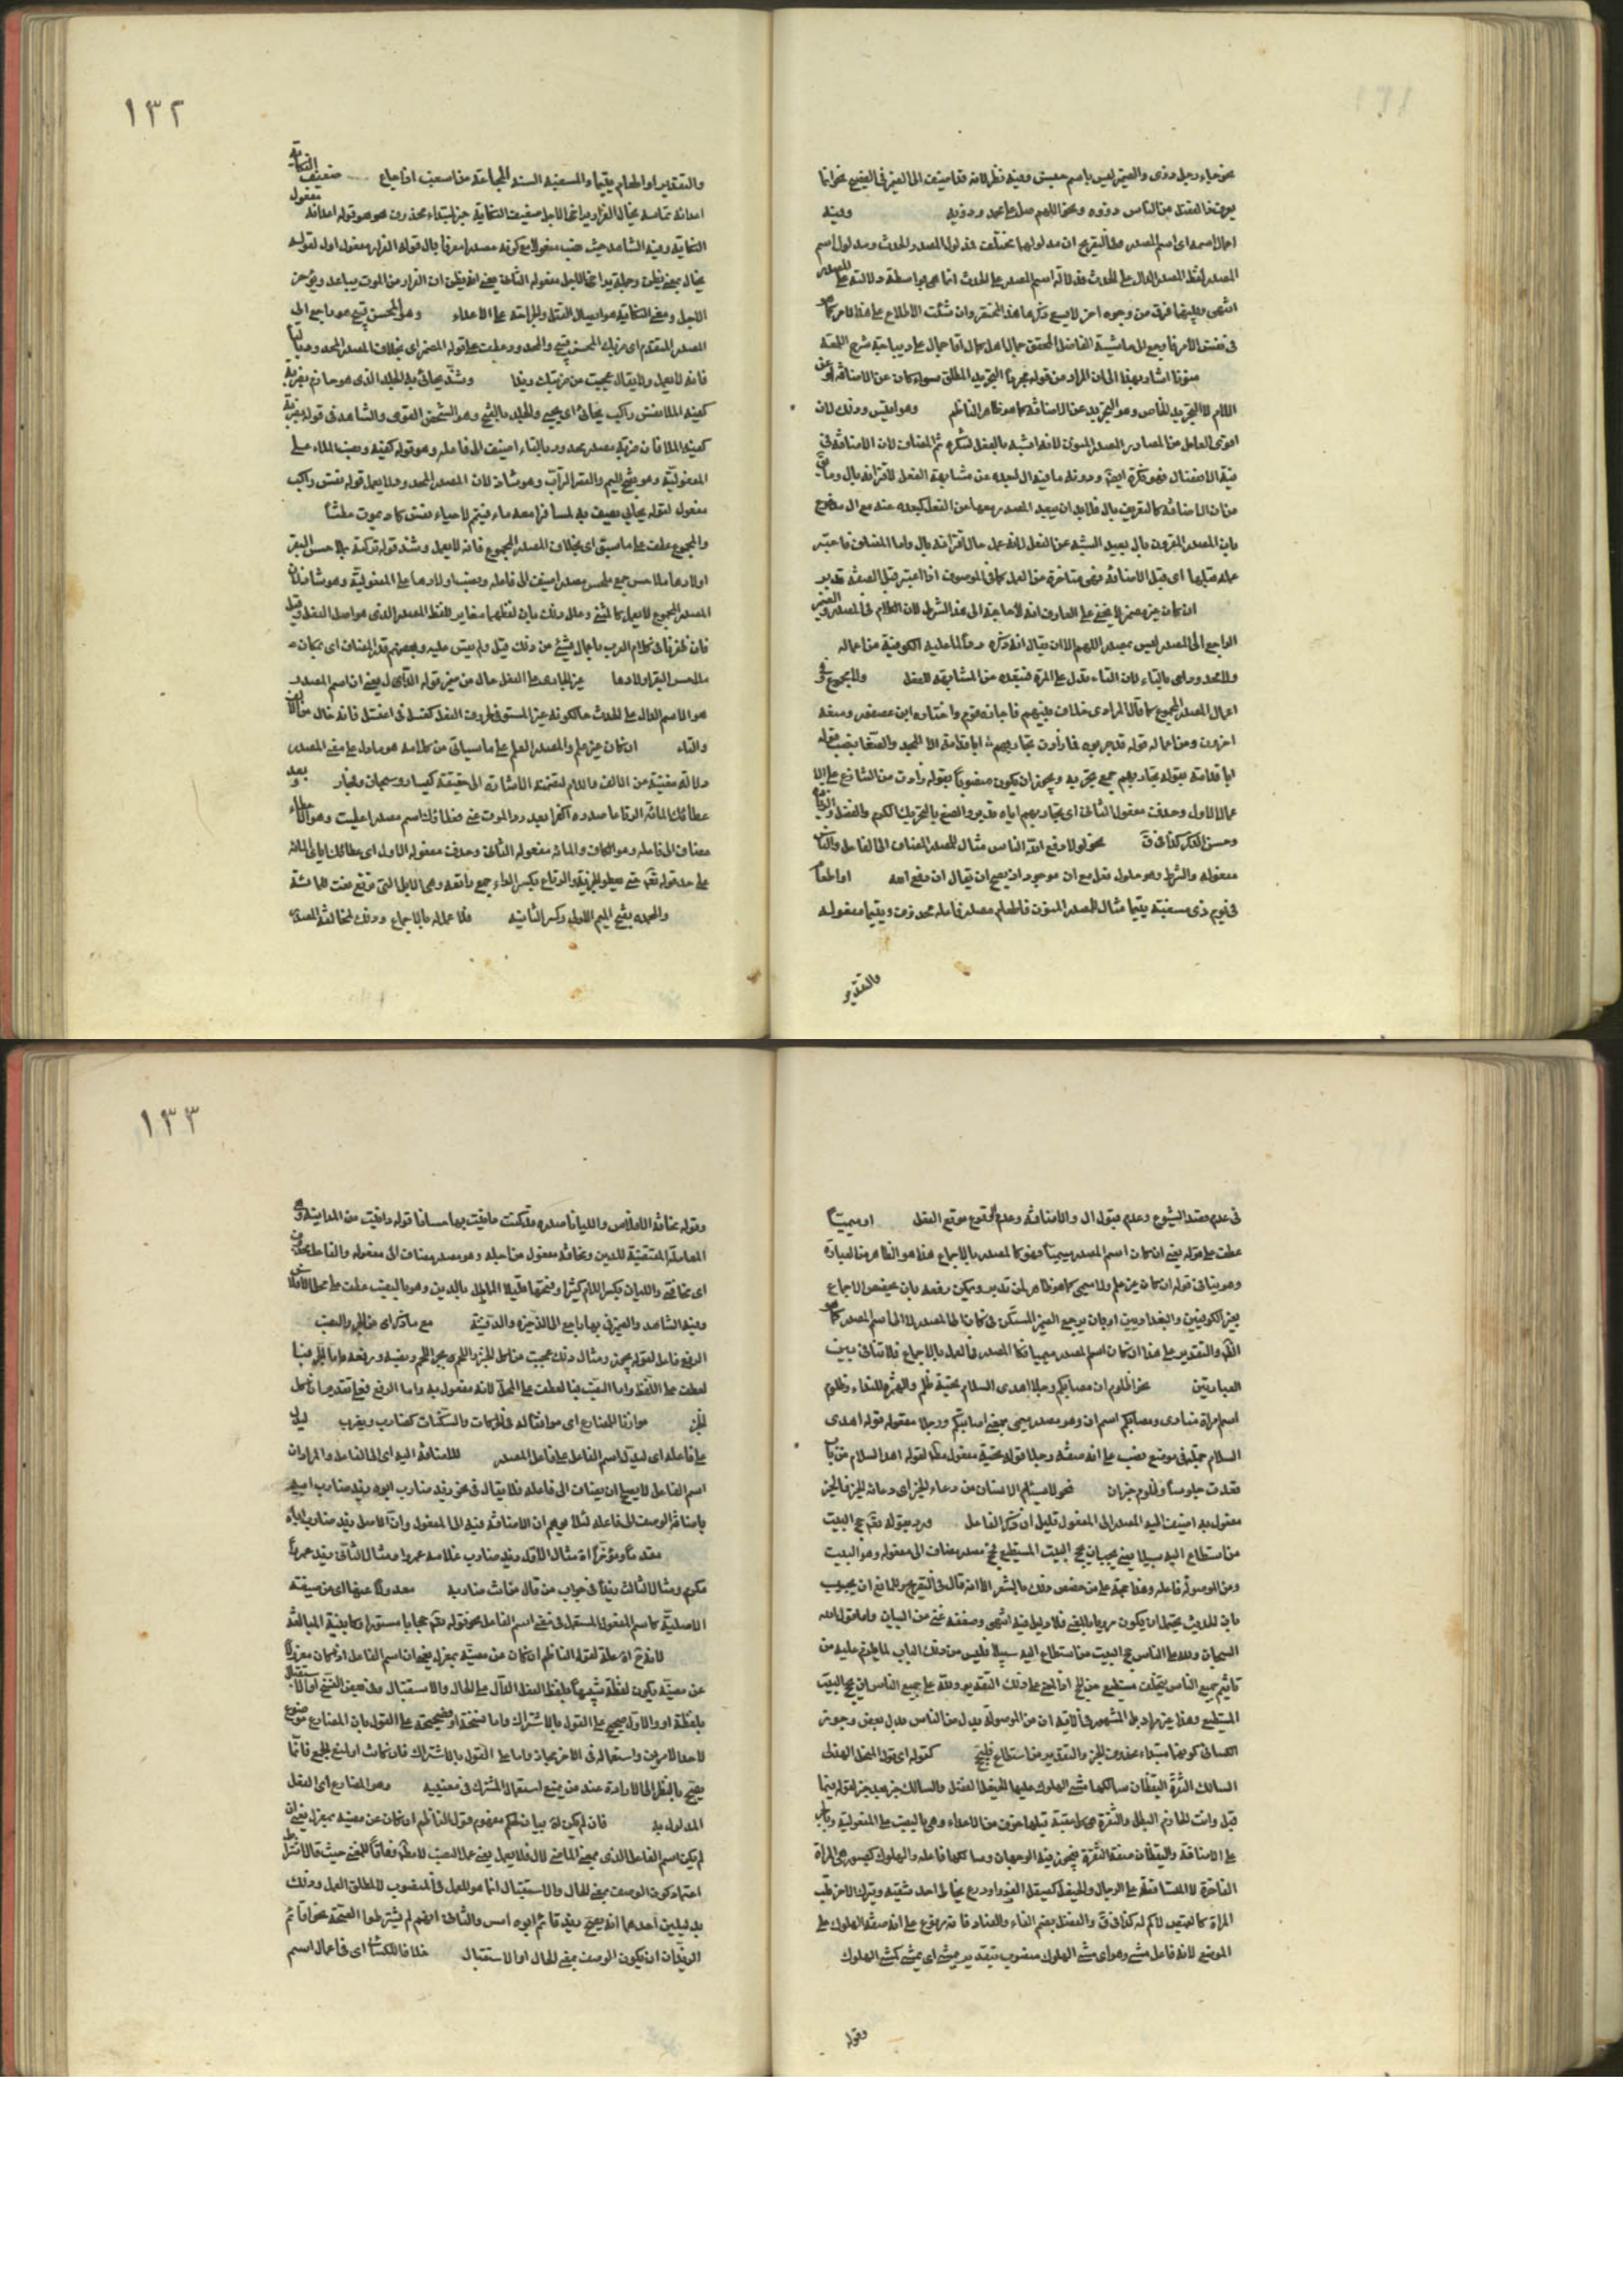 نحو جاء رجل ذوى والضمير ليس باسم جنس وفيه نظر لانه قد اضيف الى الضمير فى الفصيح نحو انما
يعرف ذا الفضل من الناس ذووه ونحو اللهم صل على محمد وذويه وفيه
اعمال اسمه اى اسم المصدر
المصدر لفظ المصدر الدال على الحدث فدلالة اسم المصدر على الحدث انما هى بواسطة دلالته على المصدر
انتهى وبينهما فرق من وجوه اخر لا يسع ذكرها هذا المختصر وان شئت الاطلاع على هذا الامر كما هو
فى نفس الامر فارجع الى حاشية الفاضل المحقق جمال
منونا اشار بهذا الى ان المراد من قوله مجردا التجريد المطلق سواء كان عن الاضافة او عن
اللام لا التجريد الخاص وهو التجريد عن الاضافة كما هو ظاهر الناظم وهو اقيس وذلك لان
اقوى العامل من المصادر المصدر المنون لانه اشبه بالفعل لنكره ثم المضاف لان الاضافة فى
نية الانفصال فهو نكرة ايضا ودونه ما فيه ال لبعده عن مشابهة الفعل لاقترانه بال
بان المصدر المقرون بال بعيد الشبه عن الفعل
ان كان غير مضمر لا يخفى على العارف انه لا حاجة الى هذا الشرط لان الكلام فى المصدر والضمير
الراجع الى المصدر ليس بمصدر اللهم الا ان يقال انه ذكره ردا لما عليه الكوفية من اعماله
ولا محدود اى بالتاء لان التاء تدل على المرة فتبعده من المشابهة للفعل ولا مجموع
اعمال المصدر المجموع كما قال المرادى خلاف فاجازه قوم واختاره ابن عصفور ومنعه
اخرون ومن اعماله قوله قد جربوه فما زادت تجاربهم ابا قدامة الا المجد والفنعا بنصب قوله
ابا قدامة بقوله تجاربهم جمع تجربة ويجوز ان يكون منصوبا بقوله زادت من التنازع
عمالا للاول وحذف مفعول الثانى اى تجاربهم اياه
وحسن الذكر كذا فى ق نحو لولا دفع الله الناس مثال للمصدر المضاف الى الفاعل والناس
مفعوله او اطعام
فى يوم ذى مسغبة يتيما مثال للمصدر المنون فاطعام مصدر فاعله محذوف ويتيما مفعوله
والتقدير
١٣٢
والتقدير او اطعامه يتيما والمسغبة السنة المجاعة من سغب اذا جاع ضعيف النكاية
اعدائه تمامه يخال الفرار يراخى الاجل ضعيف النكاية خبر لمبتدا محذوف هو هو وقوله اعدائه مفعول
النكاية وفيه الشاهد حيث نصب مفعولا مع كونه مصدرا معرفا بال قوله الفرار مفعول اول لقوله
يخال بمعنى يظن وجملة يراخى الاجل مفعوله الثانى يعنى انه يظن ان الفرار من الموت يباعد ويؤخر
الاجل ومعنى النكاية هو ايصال القتل والجراحة على الاعداء وهو المحسن قبيح هو راجع الى
فانه لا يعمل ولا يقال عجبت من ضربتك زيدا وشذ يحايى به الجلد الذى هو حازم بضربة
كفيه الملا نفس راكب يحايى اى يحيى والجلد بالفتح وهو الشخص القوى والشاهد فى قوله بضربة
كفيه الملا فان ضربة مصدر محدود بالتاء اضيف الى فاعله وهو قوله كفيه ونصب الملا على
المفعولية وهو بفتح الميم والقصر التراب وهو شاذ لان المصدر المحدود لا يعمل قوله نفس راكب
مفعول لقوله يحايى يصف به لمسافر معه ماء فتيمم لاحياء نفس كاد يموت عطشا
والمجموع عطف على ما سبق اى بخلاف المصدر المجموع فانه لا يعمل وشذ قوله تركته بملاحس البقر
اولادها ملاحس جمع ملحس مصدر اضيف الى فاعله ونصب اولادها على المفعولية وهو شاذ لان
المصدر المجموع لا يعمل كالمثنى وعلل ذلك بان لفظهما مغاير للفظ المصدر الذى هو اصل الفعل وقيل
فان ظفر فى كلام العرب باعمال شيئ من ذلك قبل ولم يقس عليه وبعضهم قدر المضاف اى بمكان
ملاحس البقر اولادها غير الجارى على الفعل حال من ضمير قوله الدال يعنى ان اسم المصدر
هو الاسم الدال على الحدث حالكونه غير المستوفى لحروف الفعل كغسل فى اغتسل فانه خال من الالف
والتاء ان كان غير علم والمصدر العلم على ما سياتى من كلامه هو ما دل على معنى المصدر
دلالة مغنية من الالف واللام لتضمنه الاشارة الى حقيقة كيسار وسبحان وفجار وبعد
عطائك المائة الرتاعا صدره اكفرا بعد رد الموت عنى فعطائك اسم مصدر اعطيت وهو
مضاف الى فاعله وهو الكاف والمائة مفعوله الثانى وحذف مفعوله الاول اى عطائك اياى المائة
على حد قوله تعالى حتى يعطوا الجزية والرتاع بكسر الراء جمع راتعة وهى الابل التى ترتع نعت للمائة
والمحمدة بفتح الميم الاولى وكسر الثانية فلا عمل له بالاجماع وذلك لمخالفته المصدر
فى عدم قصد الشيوع وعدم قبول ال والاضافة وعدم الوقوع موقع الفعل او ميميا
عطف على قوله يعنى ان كان اسم المصدر ميميا فهو كالمصدر بالاجماع هذا هو الظاهر من العبارة
وهو ينافى قوله ان كان غير علم ولا ميمى كما هو ظاهر لمن تدبر ويمكن رفعه بان يخصص الاجماع
بغير الكوفيين والبغداديين او بان يرجع الضمير المستكن فى كان الى المصدر لا الى اسم المصدر كما هو
والتقدير على هذا ان كان اسم المصدر ميميا فكالمصدر فالعمل بالاجماع فلا تنافى بين
العبارتين نحو اظلوم ان مصابكم رجلا اهدى السلام تحية ظلم والهمزة للنداء وظلوم
اسم امراة منادى ومصابكم اسم ان وهو مصدر ميمى بمعنى اصابتكم ورجلا مفعوله قوله اهدى
السلام جملة فى موضع نصب على انه صفة رجلا قوله تحية مفعول مطلق لقوله اهدى السلام من باب
قعدت جلوسا وظلم خبر ان نحو لا يسئم الانسان من دعاء الخير اى دعائه الخير فالخير
مفعول به اضيف اليه المصدر الى المفعول قليل ان ذكر الفاعل ورد بقوله تعالى حج البيت
من استطاع اليه سبيلا يعنى يجب ان يحج البيت المستطيع فحج مصدر مضاف الى مفعوله وهو البيت
ومن الموصولة فاعله وهذا حجة على من خصص ذلك بالشعر الا انه قال فى التصريح وللمانع ان يجيب
بان الحديث يحتمل ان يكون مرويا بالمعنى فلا دليل فيه انتهى وضعفه غنى عن البيان واما قول الله
السبحان ولله على الناس حج البيت من استطاع اليه سبيلا فليس من ذلك الباب لما يلزم عليه من
تاثيم جميع الناس بتخلف مستطيع عن الحج اذ المعنى على ذلك التقدير ولله على جميع الناس ان يحج البيت
المستطيع وهذا غير مراد بل المشهور فى الاية ان من الموصولة بدل من الناس بدل بعض وجوز
الكسائى كونها مبتداء محذوف الخبر والتقدير من استطاع فليحج كقوله اى قول المتنخل الهذلى
السالك الثغرة اليقظان سالكها مشى الهلوك عليها الخيعل الفضل
على الاضافة واليقظان صفة الثغرة يجوز فيه الوجهان وسالكها فاعله والهلوك كصبور هى المراة
الفاجرة المتساقطة على الرجال والخيعل كصيقل الفرو او درع يخاط احد شقيه ويترك الاخر تلبسه
المراة كالقميص لا كم له كذا فى ق والفضل بضم الفاء والضاد فانه مرفوع على انه صفة الهلوك على
الموضع لانه فاعل مشى وهو اى مشى الهلوك منصوب بتقدير يمشى اى يمشى كمشى الهلوك
وقوله
١٣٣
وقوله مخافة الافلاس والليانا صدره قد كنت داينت بها حسانا قوله داينت من المداينة وهى
المعاملة المقتضية للدين ومخافة مفعول من اجله وهو مصدر مضاف الى مفعوله والفاعل محذوف
اى مخافتى والليان بكسر اللام كثيرا وفتحها قليلا المطل بالدين وهو بالنصب عطف على محل الافلاس
وفيه الشاهد والضمير فى بها راجع الى الذخيرة والدفينة مع ما ذكر اى من الجر والنصب
الرفع فاعل لقوله يجوز ومثال ذلك عجبت من اكل الخبز واللحم بجر اللحم ونصبه ورفعه واما الجر فبا
لعطف على اللفظ واما النصب فبا لعطف على المحل لانه مفعول به واما الرفع فعلى تقدير ان يؤكل
الخبز موازنا للمضارع اى موافقا له فى الحركات والسكنات كضارب ويضرب ليدل
على فاعله اى ليدل اسم الفاعل على فاعل المصدر للاضافة اليه اى الى الفاعل والمراد ان
اسم الفاعل لا يصح ان يضاف الى فاعله فلا يقال فى نحو زيد ضارب ابوه زيد ضارب ابيه
باضافة الوصف الى فاعله لئلا يوهم ان الاضافة فيه الى المفعول وان الاصل زيد ضارب اباه
مقدما ومؤخرا اه مثال الاول زيد ضارب غلامه عمروا ومثال الثانى زيد عمروا
مكرم ومثال الثالث زيدا فى جواب من قال من انت ضاربه معدولا عنها اى عن صيغته
الاصلية كاسم المفعول المستعمل فى معنى اسم الفاعل نحو قوله تعالى حجابا مستورا وكابنية المبالغة
لانه اه علة لقول الناظم ان كان عن مضيه بمعزل يعنى ان اسم الفاعل اذا كان معزولا
عن مضيه يكون لفظه شبيها بلفظ الفعل الدال على الحال والاستقبال وفى بعض النسخ او الاستقبال
بلفظة او والاول صحيح على القول بالاشتراك واما نسخة او فصحيحة على القول بان المضارع موضوع
لاحد الامرين واستعماله فى الاخر مجاز واما على القول بالاشتراك فان كانت او لمنع الجمع فانما
يصح بالنظر الى الارادة عند من يمنع استعمال المشترك فى معنييه وهو المضارع اى الفعل
المدلول به فان لم يكن اه بيان لحكم مفهوم قول الناظم ان كان عن مضيه بمعزل يعنى ان
لم يكن اسم الفاعل الذى بمعنى الماضى لال فلا يعمل يعنى عمل النصب
اعتماد كون الوصف بمعنى الحال والاستقبال انما هو للعمل فى المنصوب لا لمطلق العمل وذلك
بدليلين احدهما انه يصح زيد قائم ابوه امس والثانى انهم لم يشترطوا لصحة نحو اقائم
الزيدان ان يكون الوصف بمعنى الحال او الاستقبال خلافا للكسائى اى فى اعمال اسم